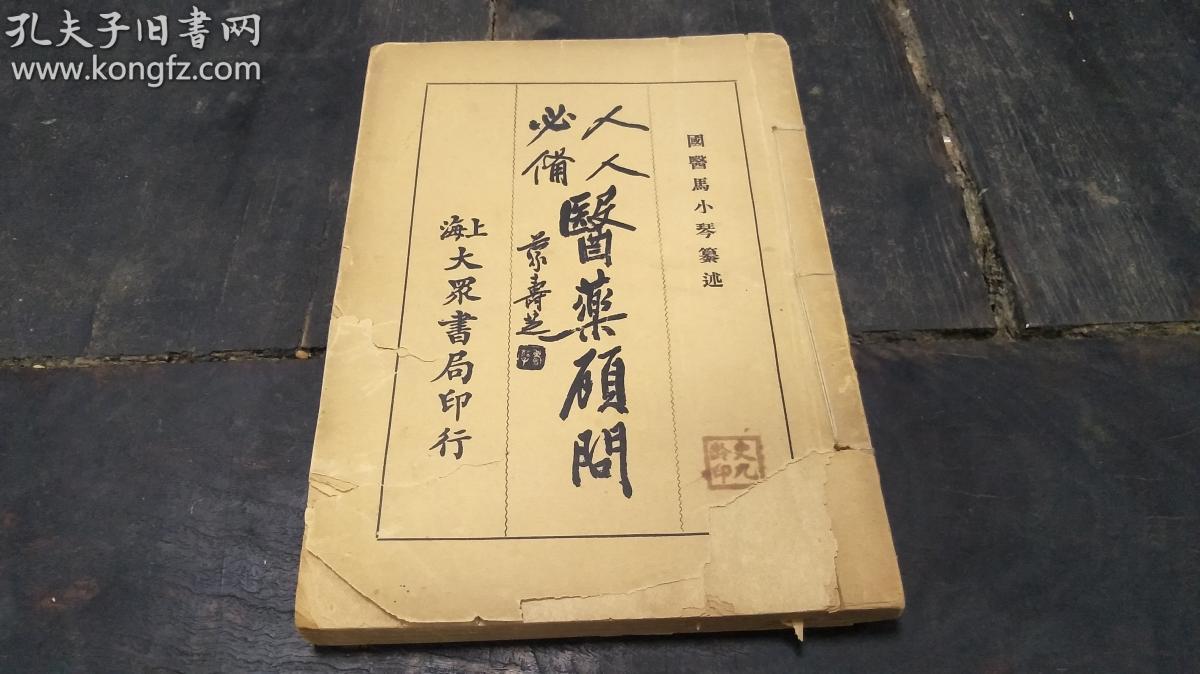 孔夫子旧书网
www.kongfz.com
國醫馬小琴纂述
人人
必備
醫藥顧問
壽芝
上海大眾書局印行
史九
齡印